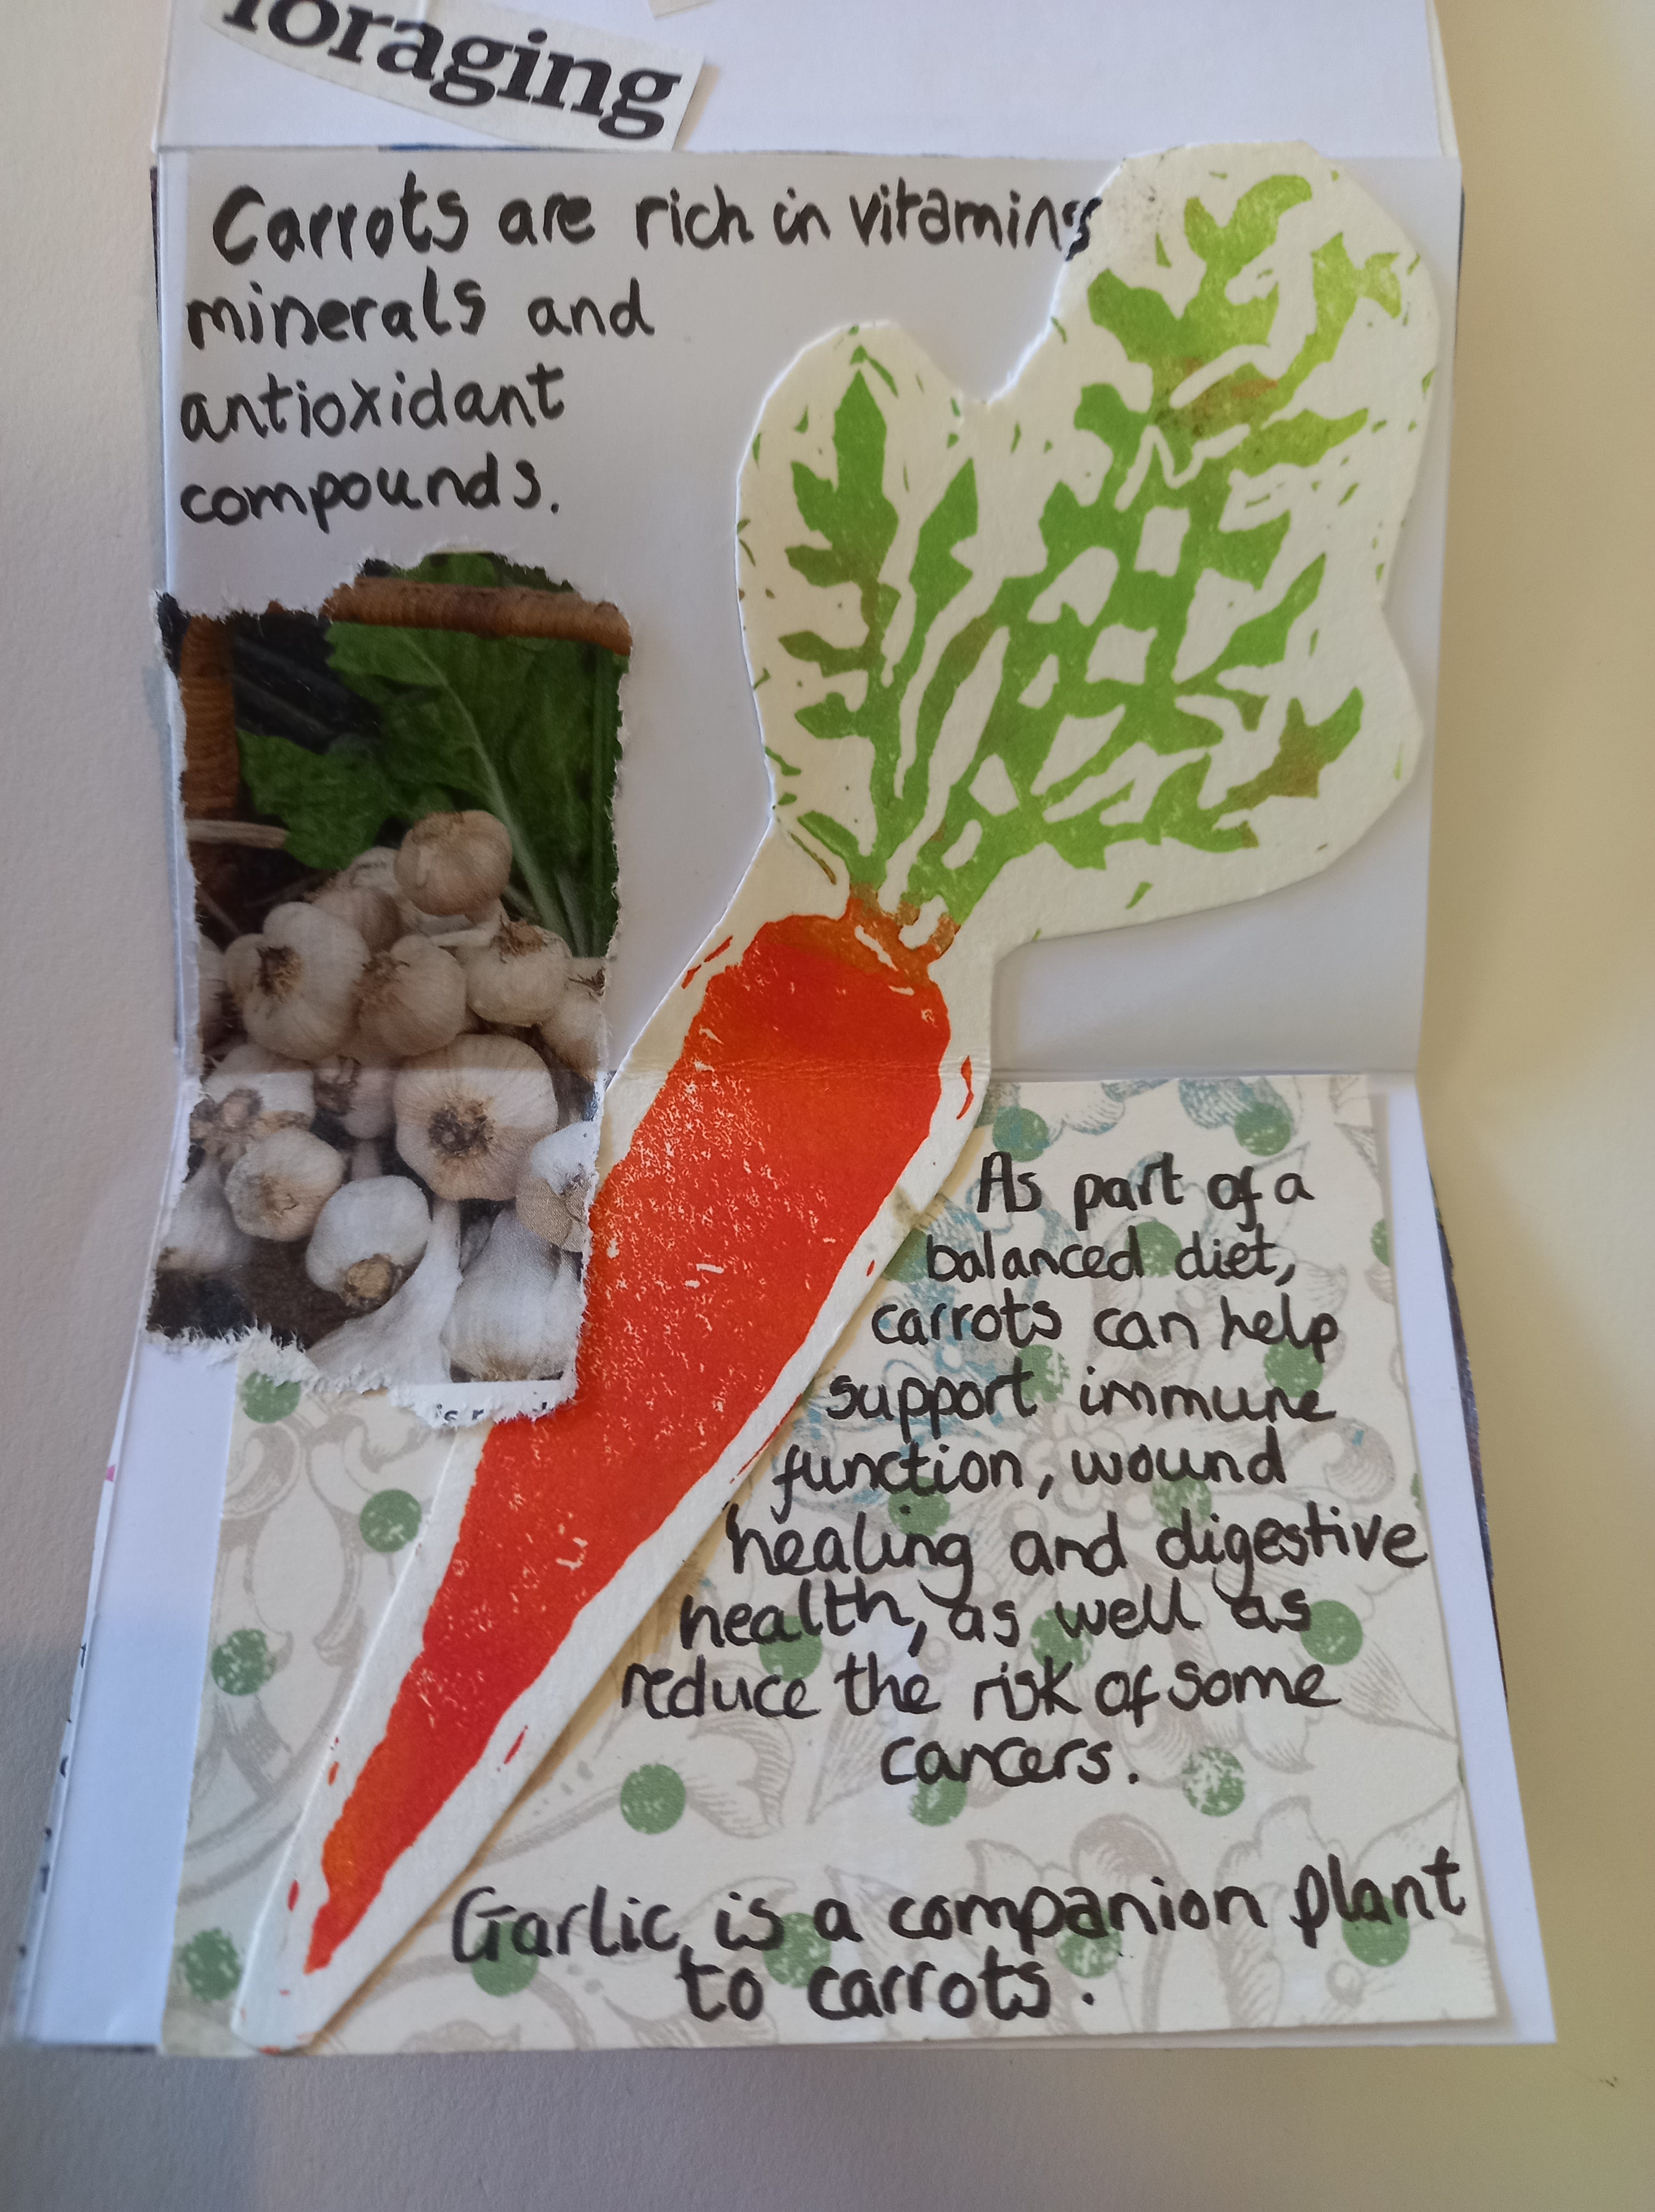 foraging
Carrots are rich in vitamins
minerals and
antioxidant
compounds.
As part of a
balanced diet,
carrots can help
support immune
function, wound
healing and digestive
health, as well as
reduce the risk of some
cancers.
Garlic is a companion plant
to carrots.